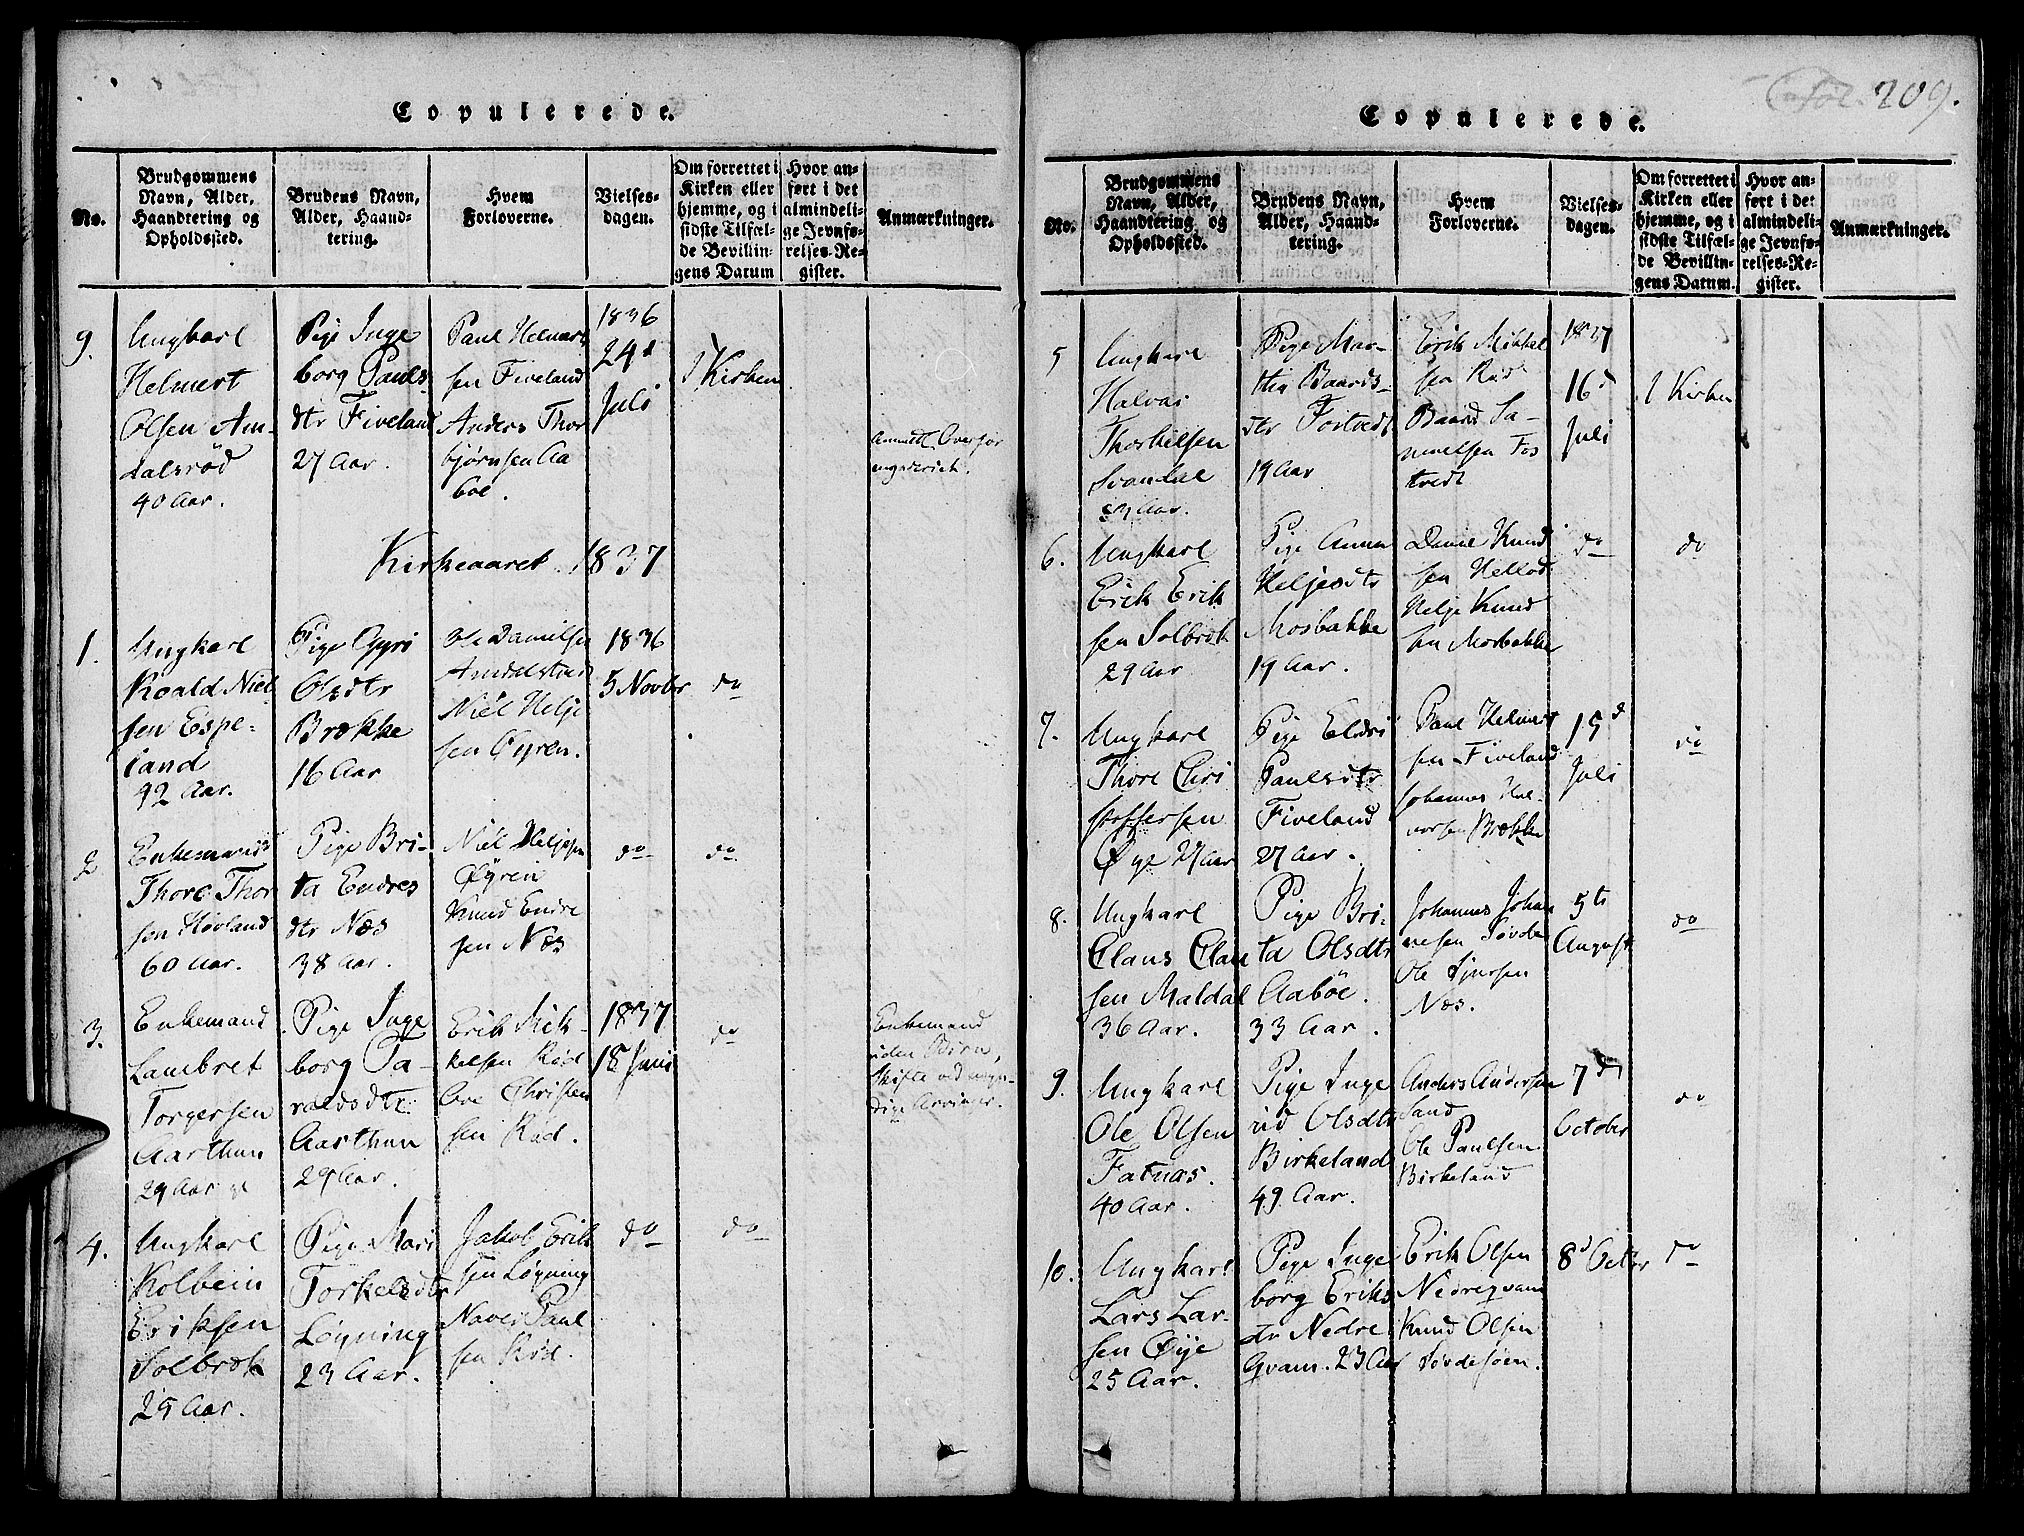 Copulerede.
No.
Brudgommens
Navn, Alder,
Haandtering og
Opholdssted.
Brudens Navn,
Alder, Haand-
tering.
Hvem
Forloverne.
Vielses-
dagen.
Om forrettet i
Kirken eller
hjemme, og i
sidste Tilfæl-
de Bevillin-
gens Datum
Hvor an-
ført i det
almindeli-
ge Jevnfø-
relses-Re-
gister.
Anmærkninger.
9.
Ungkarl
Helmert
Olsen Am-
dalsrød
40 Aar.
Pige Inge
borg Pauls
dtr Fiveland
27 Aar.
Paul Helmert
sen Fiveland
Anders Thor
bjørnsen Aa
böe.
1836
24d
Juli
I Kirken
Kirkeaaret 1837
1.
Ungkarl
Roald Niel
sen Espe-
land
42 Aar.
Pige Gyri
Olsdtr
Brække
16 Aar
Ole Danielsen
Amdalstad
Niel Helje
sen Øyren.
1836
5 Novbr
do
2
Enkemand
Thore Thor
sen Høvland
60 Aar.
Pige Bri-
ta Endres
dtr Næs
38 Aar.
Niel Heljesen
Øyren
Knud Endre
sen Næs
do
do
3.
Enkemand
Lambret
Torgersen
Aarthun
29 Aar
Pige Inge
borg Ta-
raldsdtr
Aarthun
29 Aar.
Erik Mik-
kelsen Rød
Ove Christen
sen Rød.
1837
18 Juni
do
Enkemand
uden Børn,
Skifte ved myn-
dige Arvinger.
4.
Ungkarl
Kolbein
Eriksen
Solbræk
25 Aar.
Pige Mari
Torkelsdtr
Løgning
23 Aar.
Jakob Erik
sen Løgning
Naver Paul
sen Rød.
do
do
209.
Copulerede.
No.
Brudgommens
Navn, Alder,
Haandtering og
Opholdssted.
Brudens Navn,
Alder, Haand-
tering.
Hvem
Forloverne.
Vielses-
dagen.
Om forrettet i
Kirken eller
hjemme, og i
sidste Tilfæl-
de Bevillin-
gens Datum.
Hvor an-
ført i det
almindeli-
ge Jevnfø-
relses-Re-
gister.
Anmærkninger.
5
Ungkarl
Halvar
Thorkilsen
Svandal
Aar.
Pige Mar-
tha Baards-
dtr Fostvedt
19 Aar
Erik Mikkel
sen Rød
Baard Sa-
muelsen Fos
tvedt
1837
16d
Juli
I Kirken
6.
Ungkarl
Erik Erik
sen Solbræk
29 Aar
Pige Anna
Heljesdtr
Mosbakke
19 Aar.
Knud
sen
Helje Knud
sen Mosbakke
do
do
7.
Ungkarl
Thore Chri
stoffersen
Øye 27 Aar
Pige Eldri
Paulsdtr
Fiveland
27 Aar.
Paul Helmert
sen Fiveland
Johannes Hal-
vorsen Brække
15d
Juli
do
8.
Ungkarl
Claus Clau
sen Maldal
36 Aar.
Pige Bri-
ta Olsdtr
Aaböe.
33 Aar.
Johannes Johan
nesen Søvde
Ole Sjursen
Næs.
5te
August
do
9.
Ungkarl
Ole Olsen
Fatnæs.
40 Aar.
Pige Inge
rid Olsdtr
Birkeland
49 Aar.
Anders Andersen
Sand
Ole Paulsen
Birkeland
7d
October
do
10.
Ungkarl
Lars Lar-
sen Øye
25 Aar.
Pige Inge
borg Eriks
dtr Nedre
Qvam. 23 Aar
Erik Olsen
Nedreqvam
Knud Olsen
Søvdesøen.
8d Octbr
do